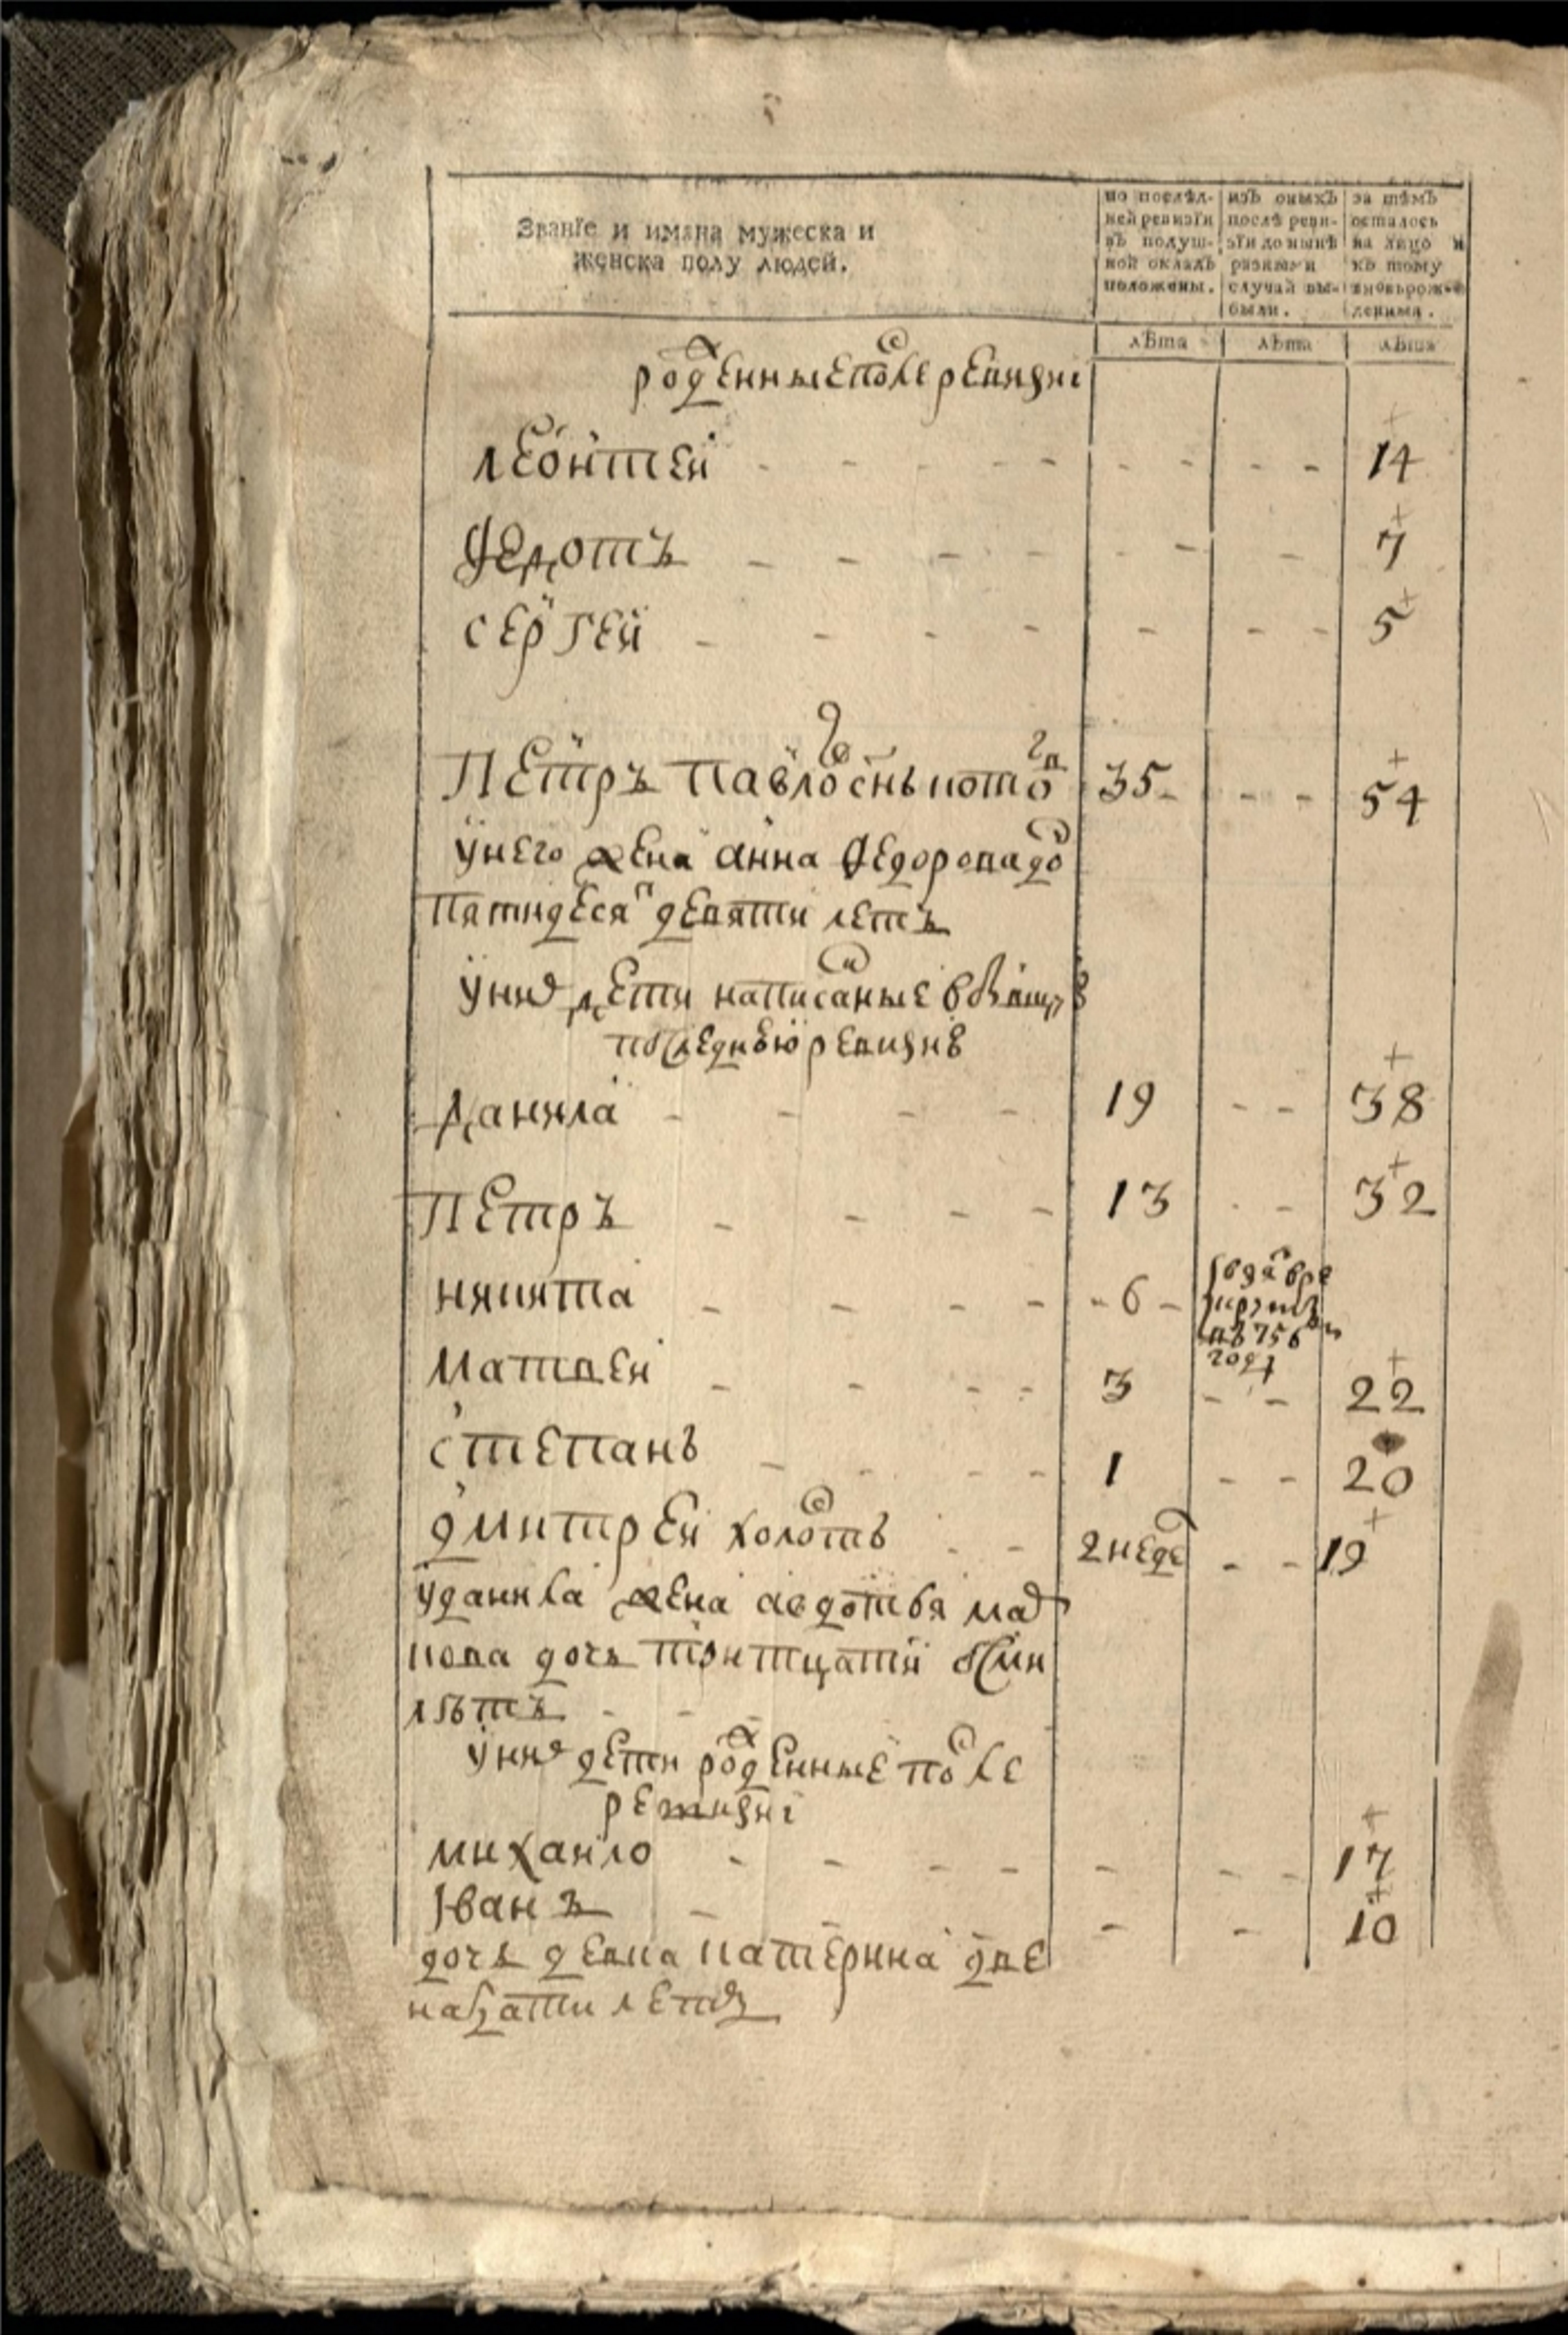 Званїе и имяна мужеска и
женска полу людей.
по послѣд-
ней ревизїи
въ подуш-
ной окладъ
положены.
изъ оныхъ
послѣ реви-
зїи до нынѣ
разными
случаи вы-
были.
за тѣмъ
осталось
на лицо и
къ тому
вновьрож-
денныя.
лѣта лѣта лѣта
рожденные после ревизиі
леонтеи - - - - - - - - 14
Федотъ - - - - - - - 7
сергеи - - - - - - - 5
Петръ павло снь 35 - - - 54
у него жена анна федорова до
пятидесят девяти летъ
у них дети написаные в
последнею ревизию
данила - - - - 19 - - 38
Петръ - - - - 13 - - 32
никита - - - - - 6 -
в 756 м
году
Матвеи - - - - 3 - - 22
степанъ - - - - 1 - - 20
дмитреи холость - - 2 неде - - 19
у данила жена авдотья
дочь тритцати осми
лѣтъ - -
у них дети рожденные после
ревизиі
михаило - - - - - - - 17
Іванъ - - - - 10
дочь девка катерина две
натцати летъ